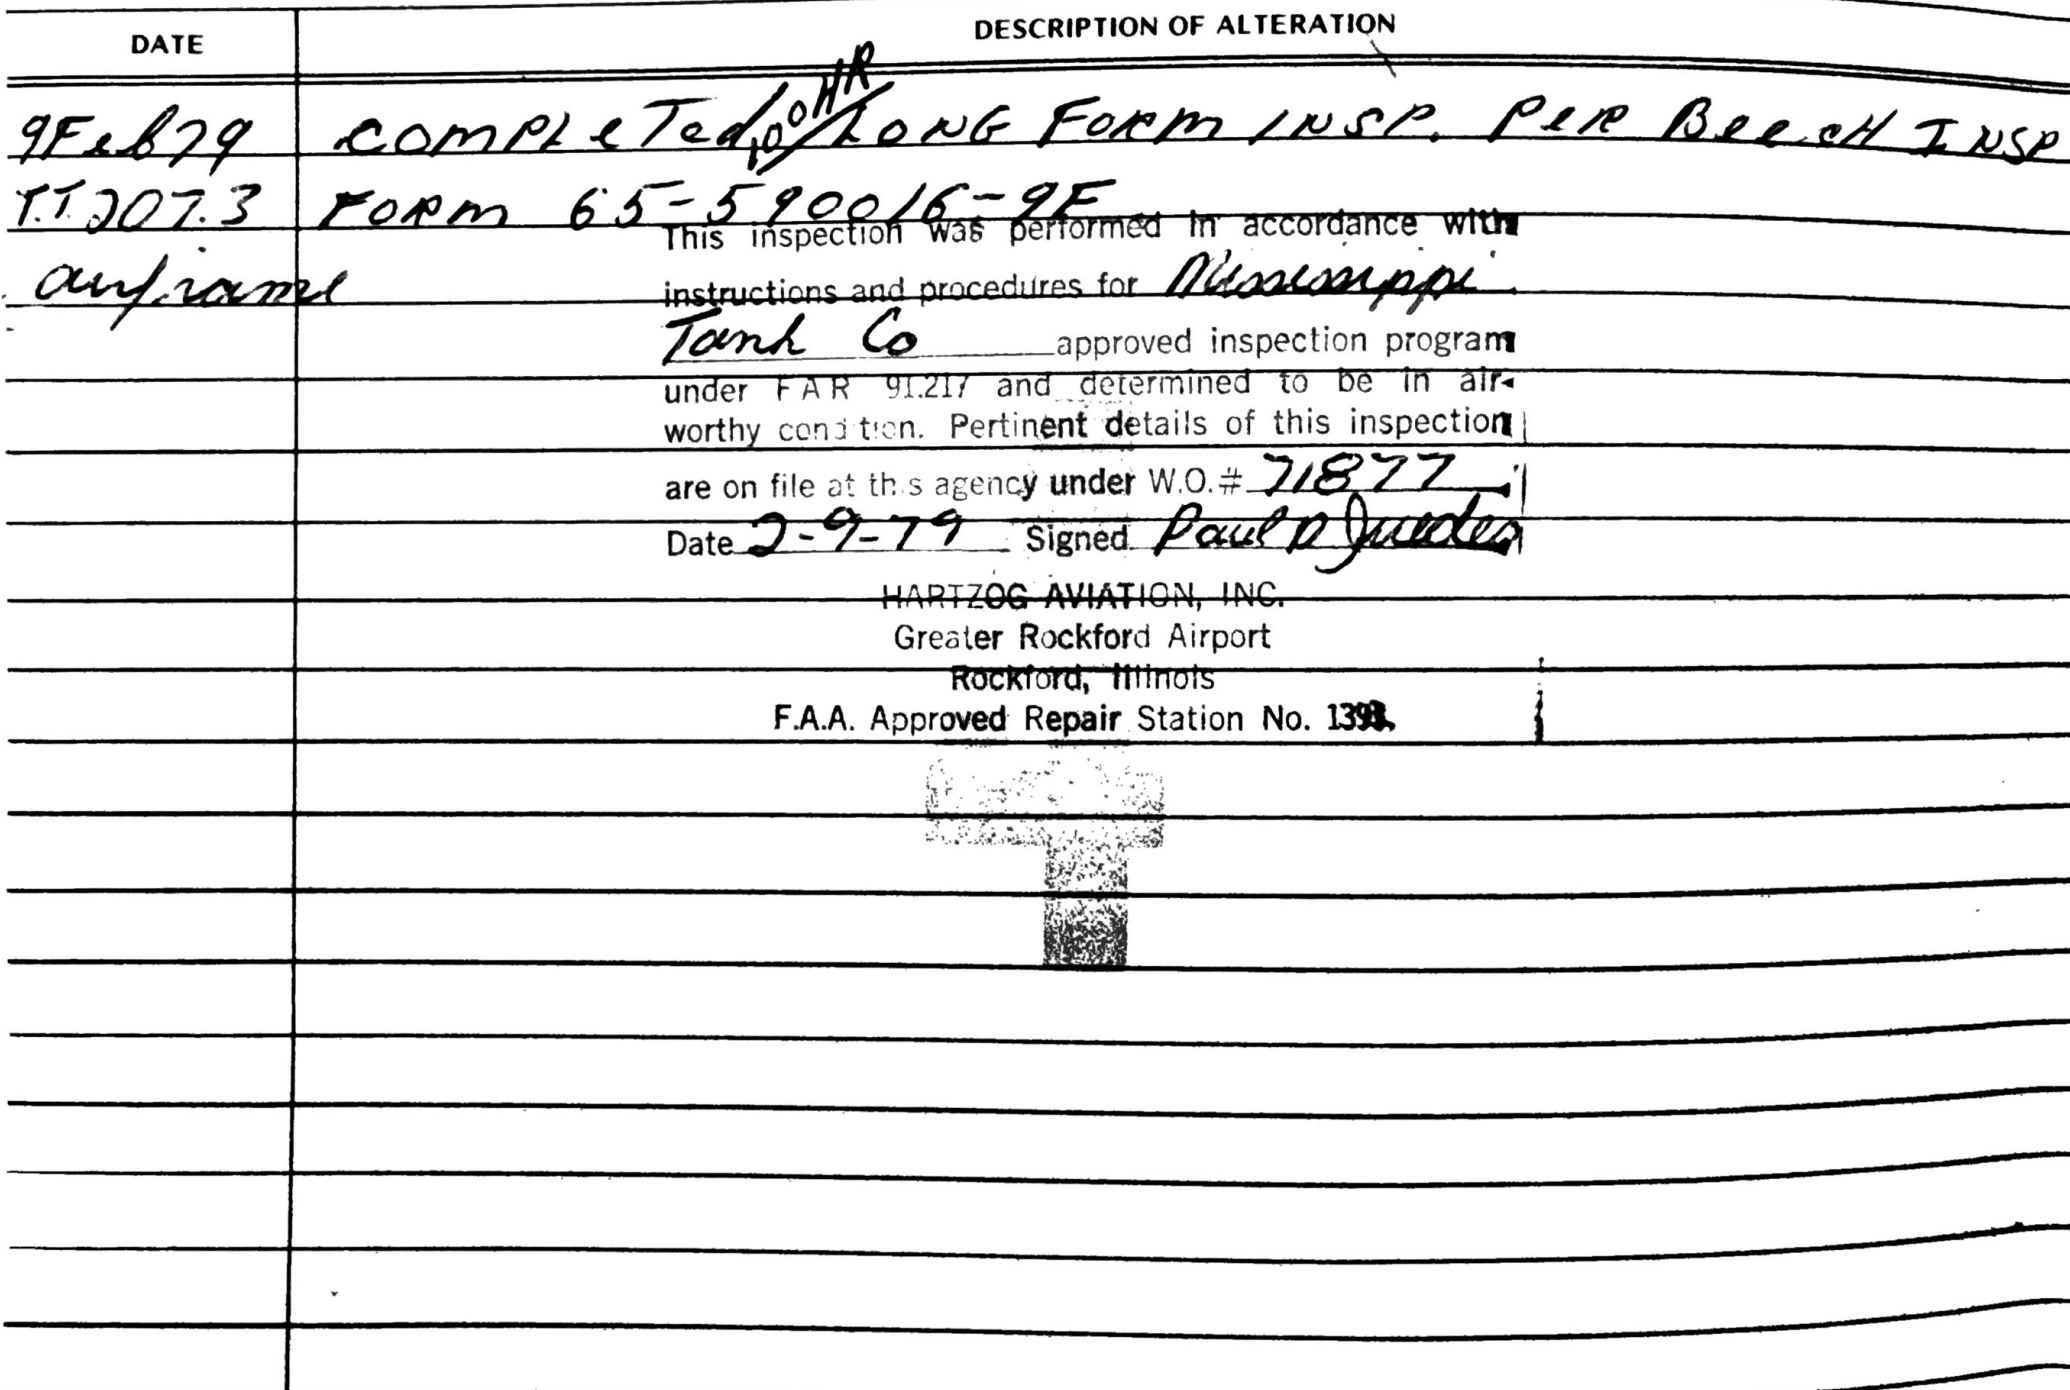 DATE DESCRIPTION OF ALTERATION
9Feb79 COMPLeTed 100HR/LONG FORM INSP. PeR BeecH INSP
T.T. 207.3 FORM 65-590016-9F
airframe
This inspection was performed in accordance with
instructions and procedures for Mississippi
Tank Co approved inspection program
under FAR 91.217 and determined to be in air-
worthy condition. Pertinent details of this inspection
are on file at this agency under W.O.# 71877
Date 2-9-79 Signed Paul D
HARTZOG AVIATION, INC.
Greater Rockford Airport
Rockford, Illinois
F.A.A. Approved Repair Station No.